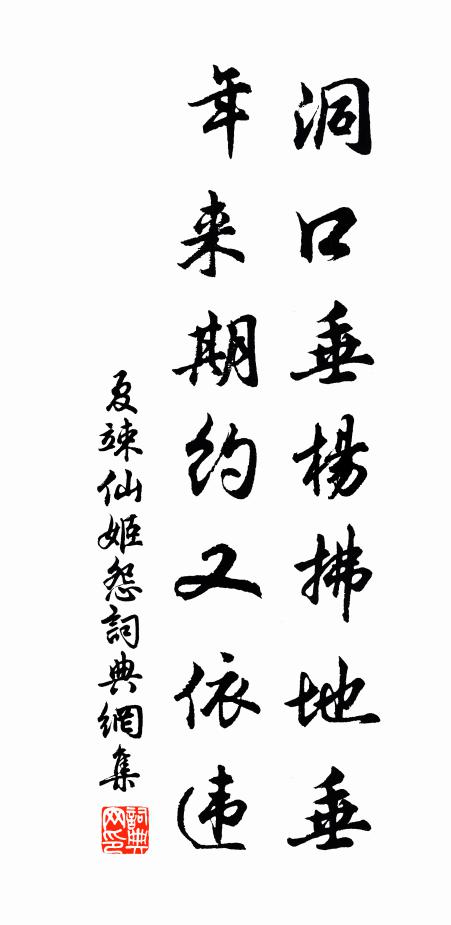 洞口垂楊拂地垂
年来期约又依违
夏竦仙姬怨詞典網集
詞典网印